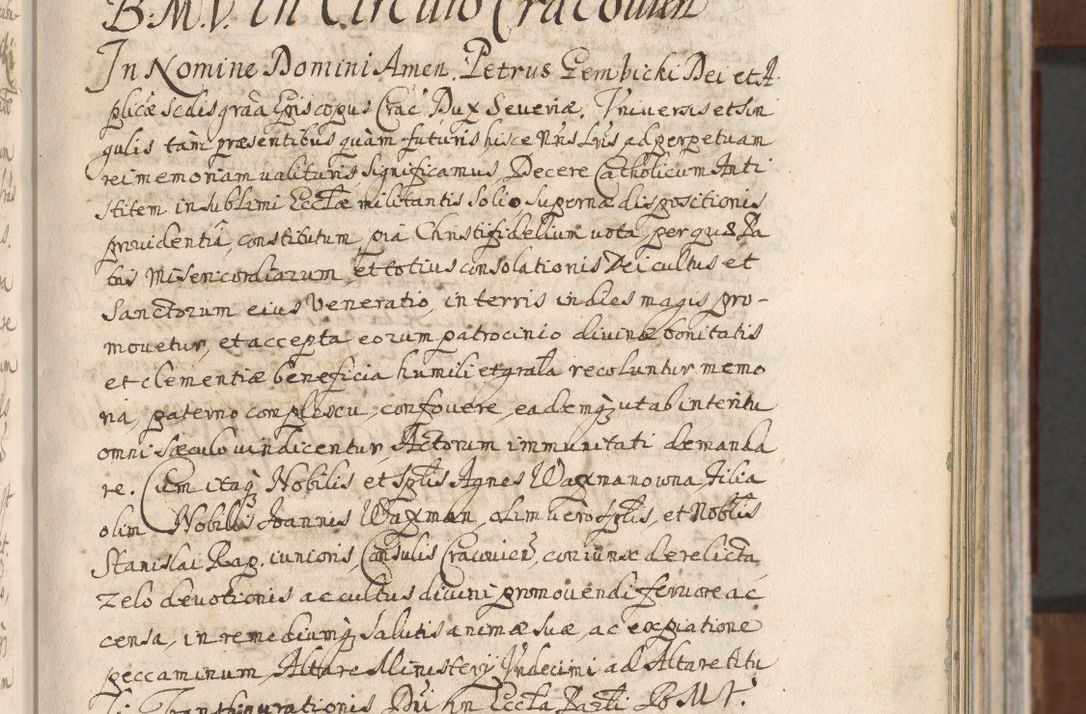 B.M.V. in Circulo Cracovien
In Nomine Domini Amen. Petrus Gembicki Dei et A
plicæ sedis graã Episcopus Crac Dux Severiæ. Vniversis et sin
gulis tàm præsentibus quàm futuris hisce Nris Lris ad perpetuam
rei memoriam valituris, significamus, Decere Catholicum Anti
stitem in sublimi Eccłæ militantis solio supernæ dispositionis
providentiâ, constitutum, pia Christifidelium vota, per quæ Pa
tris Misericordiarum, et totius consolationis Dei cultus et
Sanctorum eius Veneratio, in terris in dies magis, pro-
movetur, et accepta eorum patrocinio divinæ bonitatis
et clementiæ beneficia humili et grata recoluntur memo
ria, paterno complexu, confovere, eademq; ut ab interitu
omni sæculo vindicentur, Actorum immunitati demanda
re. Cum itaq; Nobilis et Spłis Agnes Waxmanowna, Filia
olim Nobilis Joannis Waxman, olim vero Spłis, et Nobłis
Stanislai Rap. iunioris, Consulis Cracovien, coniunx derelicta,
zelo devotionis ac cultus divini promovendi fervore ac
censa, in remediumq; salutis animæ suæ, ac expiatione
peccaminum, Altare Ministerij Vndecimi ad Altare titu
li Transfigurationis Dni in Eccła B.M.V.